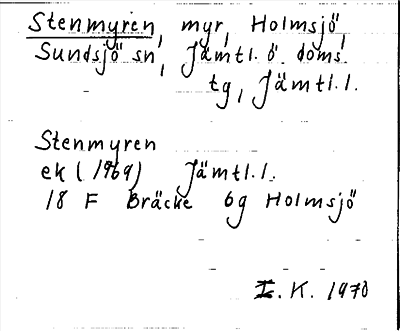 Stenmyren, myr, Holmsjö,
Sundsjö sn, Jämtl. ö. doms.
tg, Jämtl. l.
Stenmyren
ek (1969) Jämtl. l.
18 F Bräcke 6g Holmsjö
I. K. 1970